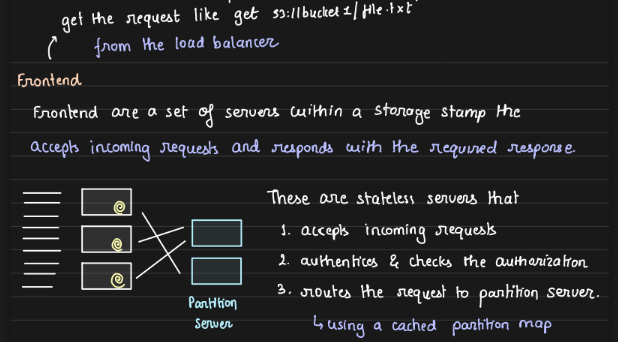 get the request like get s3://bucket1/file.txt
from the load balancer
Frontend
Frontend are a set of servers within a storage stamp the
accepts incoming requests and responds with the required response.
These are stateless servers that
1. accepts incoming requests
2. authentices & checks the autharization
3. routes the request to partition server.
↳ using a cached partition map
Partition
Server